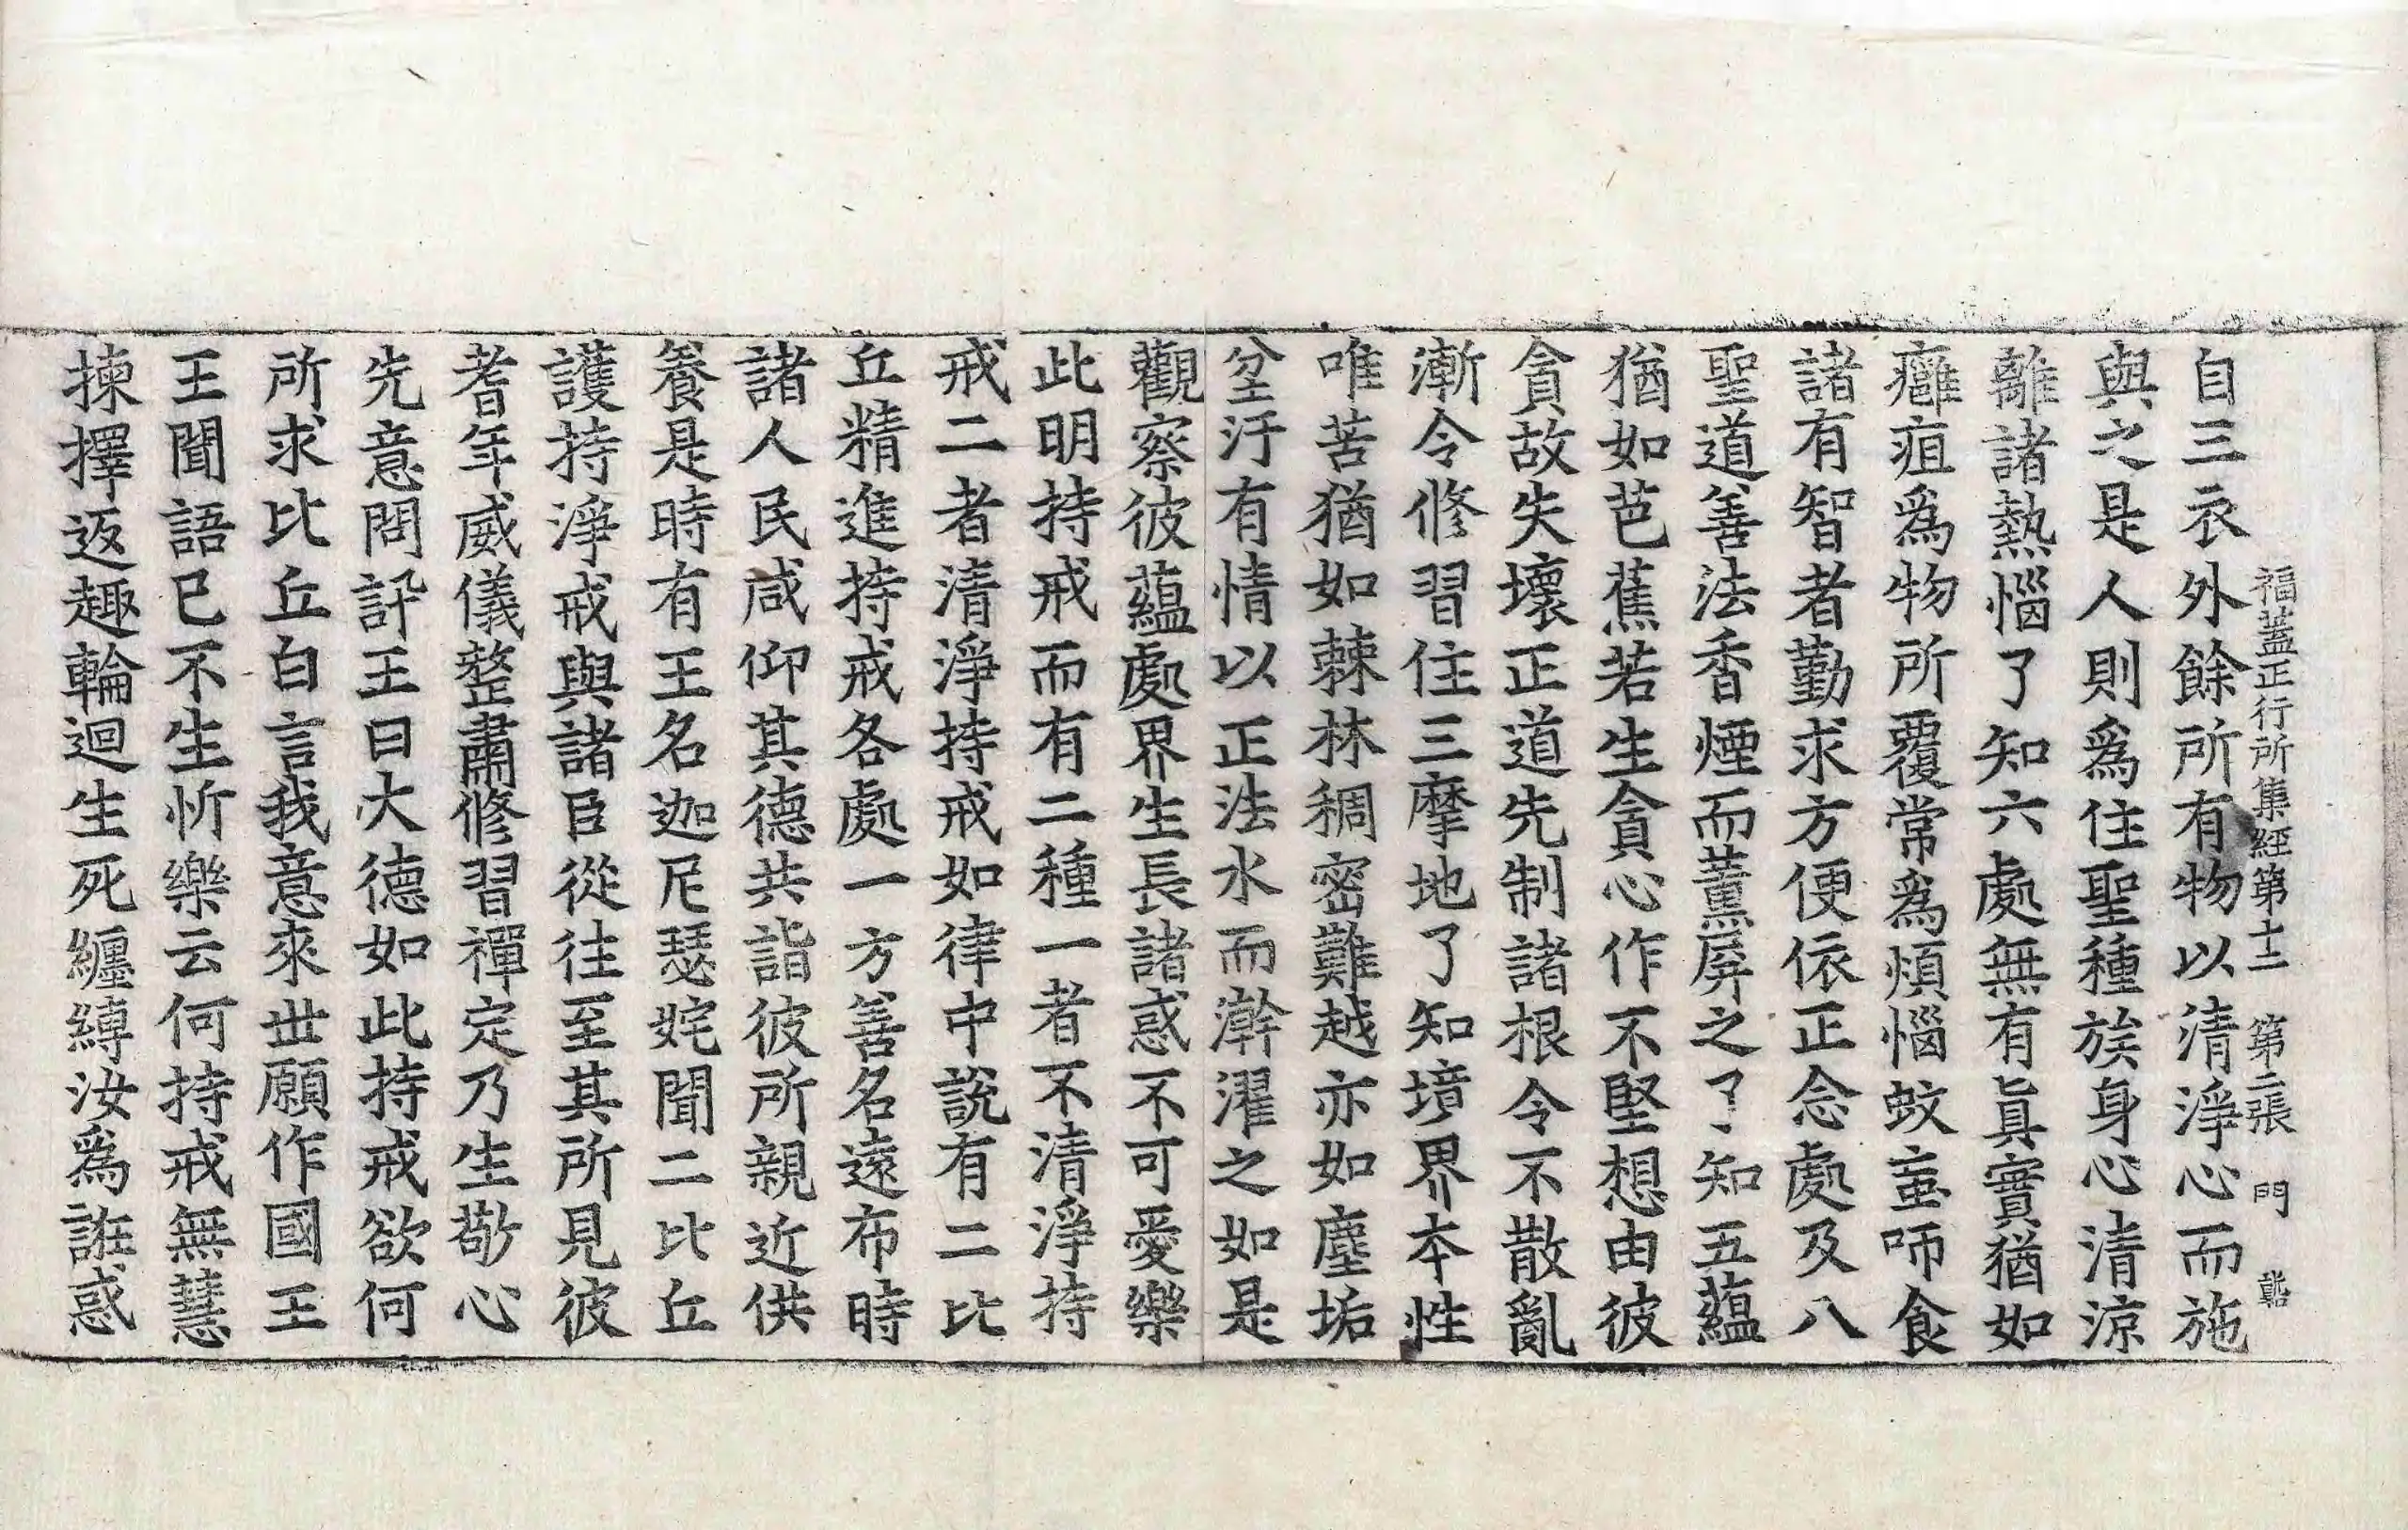 福蓋正行所集經第十二　第二張　門
自三衣外餘所有物以清淨心而施
與之是人則爲住聖種族身心清涼
離諸熱惱了知六處無有眞實猶如
癰疽爲物所覆常爲煩惱蚊䖟咂食
諸有智者勤求方便依正念處及八
聖道善法香煙而薰屏之了知五蘊
猶如芭蕉若生貪心作不堅想由彼
貪故失壞正道先制諸根令不散亂
漸令修習住三摩地了知境界本性
唯苦猶如棘林稠密難越亦如塵垢
坌汙有情以正法水而澣濯之如是
觀察彼蘊處界生長諸惑不可愛樂
此明持戒而有二種一者不清淨持
戒二者清淨持戒如律中說有二比
丘精進持戒各處一方善名遠布時
諸人民咸仰其德共詣彼所親近供
養是時有王名迦尼瑟姹聞二比丘
護持淨戒與諸臣從往至其所見彼
耆年威儀整肅修習禪定乃生敬心
先意問訊王曰大德如此持戒欲何
所求比丘白言我意來世願作國王
王聞語已不生忻樂云何持戒無慧
揀擇返趣輪迴生死纏縛汝爲誑惑